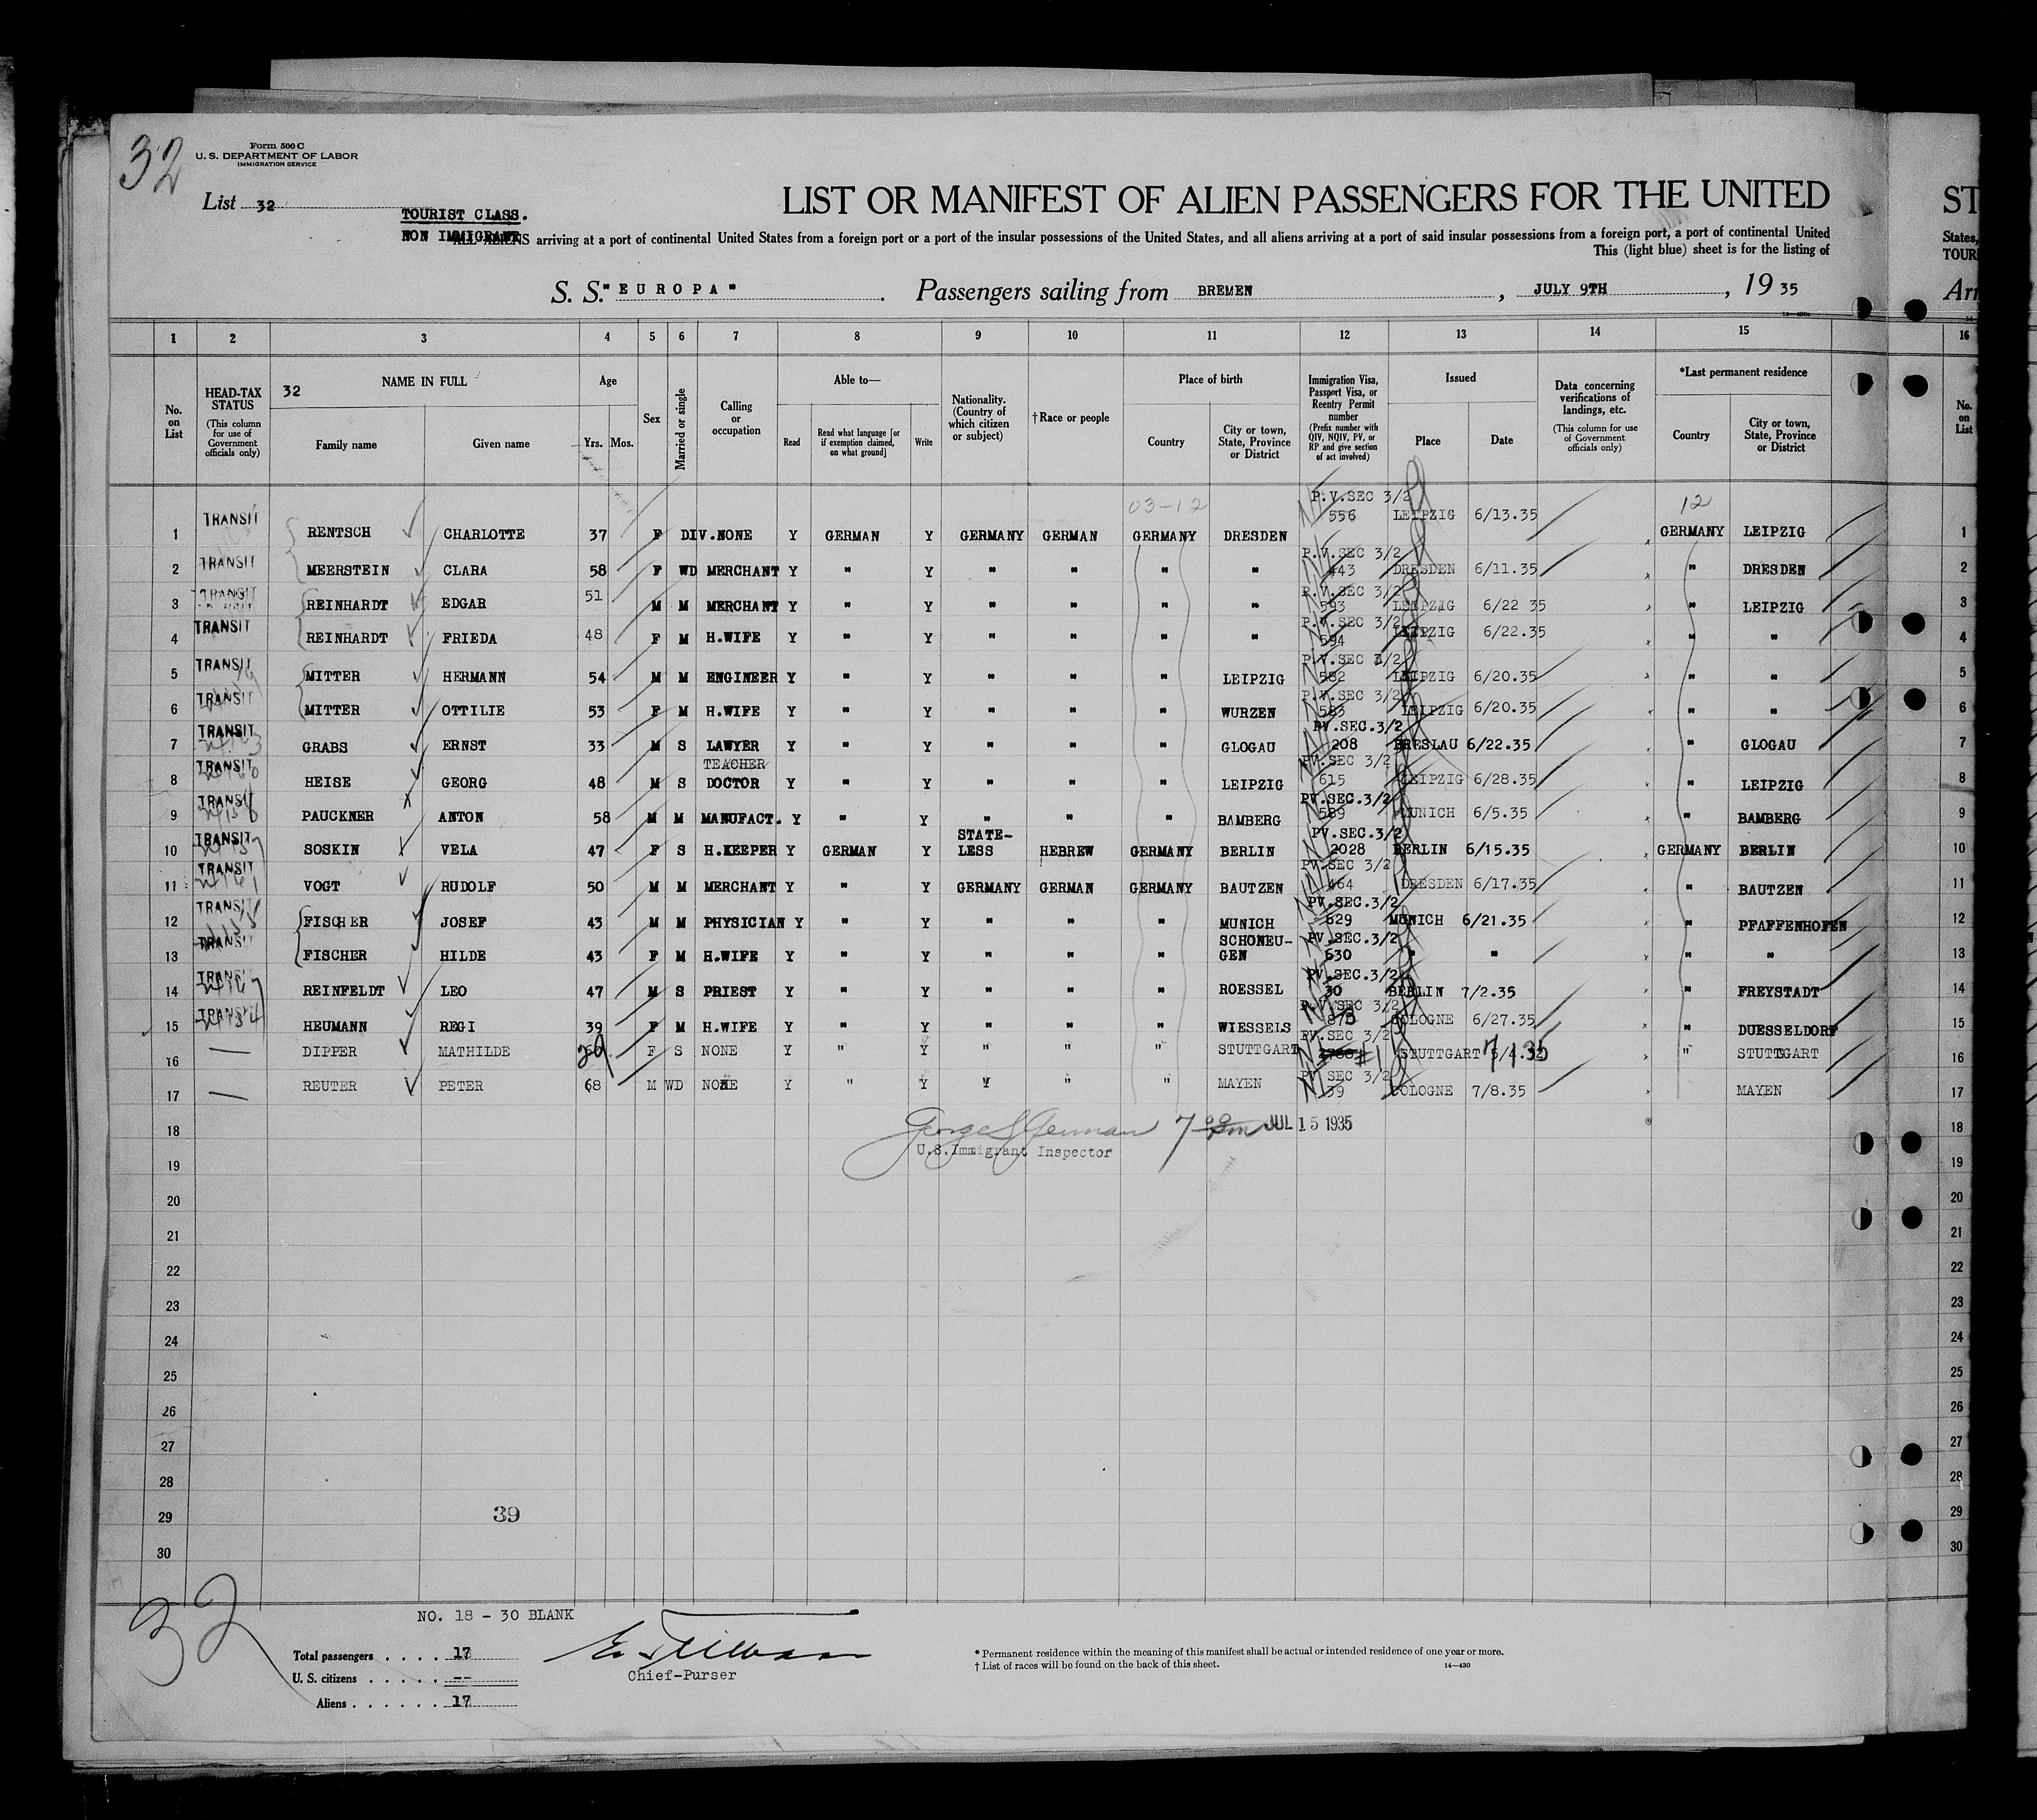 32
Form 500 C
U. S. DEPARTMENT OF LABOR
IMMIGRATION SERVICE
List 32
TOURIST CLASS.
NON IMMIGRANT
LIST OR MANIFEST OF ALIEN PASSENGERS FOR THE UNITED
ALL ALIENS arriving at a port of continental United States from a foreign port or a port of the insular possessions of the United States, and all aliens arriving at a port of said insular possessions from a foreign port, a port of continental United
This (light blue) sheet is for the listing of
S. S. "EUROPA" . Passengers sailing from BREMEN , JULY 9TH , 19 35
ST
States,
TOUR
Arr
1 2 3 4 5 6 7 8 9 10 11 12 13 14 15 16
No. on List
HEAD-TAX STATUS (This column for use of Government officials only)
32 NAME IN FULL
Family name Given name
Age Yrs. Mos.
Sex
Married or single
Calling or occupation
Able to—
Read Read what language [or if exemption claimed, on what ground] Write
Nationality. (Country of which citizen or subject)
† Race or people
Place of birth
Country City or town, State, Province or District
Immigration Visa, Passport Visa, or Reentry Permit number (Prefix number with QIV, NQIV, PV, or RP and give section of act involved)
Issued
Place Date
Data concerning verifications of landings, etc. (This column for use of Government officials only)
*Last permanent residence
Country City or town, State, Province or District
No. on List
03-12 12
1 TRANSIT RENTSCH CHARLOTTE 37 F DIV. NONE Y GERMAN Y GERMANY GERMAN GERMANY DRESDEN P.V.SEC 3/2 556 LEIPZIG 6/13.35 GERMANY LEIPZIG 1
2 TRANSIT MEERSTEIN CLARA 58 F WD MERCHANT Y " Y " " " " P.V.SEC 3/2 443 DRESDEN 6/11.35 " DRESDEN 2
3 TRANSIT REINHARDT EDGAR 51 M M MERCHANT Y " Y " " " " P.V.SEC 3/2 593 LEIPZIG 6/22 35 " LEIPZIG 3
4 TRANSIT REINHARDT FRIEDA 48 F M H.WIFE Y " Y " " " " P.V.SEC 3/2 594 LEIPZIG 6/22.35 " " 4
5 TRANSIT MITTER HERMANN 54 M M ENGINEER Y " Y " " " LEIPZIG P.V.SEC 3/2 582 LEIPZIG 6/20.35 " " 5
6 TRANSIT MITTER OTTILIE 53 F M H.WIFE Y " Y " " " WURZEN P.V.SEC 3/2 583 LEIPZIG 6/20.35 " " 6
7 TRANSIT GRABS ERNST 33 M S LAWYER Y " Y " " " GLOGAU PV.SEC.3/2 208 BRESLAU 6/22.35 " GLOGAU 7
8 TRANSIT HEISE GEORG 48 M S TEACHER DOCTOR Y " Y " " " LEIPZIG PV.SEC 3/2 615 LEIPZIG 6/28.35 " LEIPZIG 8
9 TRANSIT PAUCKNER ANTON 58 M M MANUFACT. Y " Y " " " BAMBERG PV.SEC.3/2 589 MUNICH 6/5.35 " BAMBERG 9
10 TRANSIT SOSKIN VELA 47 F S H.KEEPER Y GERMAN Y STATE-LESS HEBREW GERMANY BERLIN PV.SEC.3/2 2028 BERLIN 6/15.35 GERMANY BERLIN 10
11 TRANSIT VOGT RUDOLF 50 M M MERCHANT Y " Y GERMANY GERMAN GERMANY BAUTZEN PV.SEC 3/2 464 DRESDEN 6/17.35 " BAUTZEN 11
12 TRANSIT FISCHER JOSEF 43 M M PHYSICIAN Y " Y " " " MUNICH PV.SEC.3/2 629 MUNICH 6/21.35 " PFAFFENHOFEN 12
13 TRANSIT FISCHER HILDE 43 F M H.WIFE Y " Y " " " SCHONEU-GEN PV.SEC.3/2 630 " " " " 13
14 TRANSIT REINFELDT LEO 47 M S PRIEST Y " Y " " " ROESSEL PV.SEC.3/2 30 BERLIN 7/2.35 " FREYSTADT 14
15 TRANSIT HEUMANN REGI 39 F M H.WIFE Y " Y " " " WIESSELS P.V.SEC 3/2 COLOGNE 6/27.35 " DUESSELDORF 15
16 — DIPPER MATHILDE 29 F S NONE Y " Y " " " STUTTGART PV.SEC 3/2 #1 STUTTGART 7/1 35 " STUTTGART 16
17 — REUTER PETER 68 M WD NONE Y " Y " " " MAYEN PV SEC 3/2 39 COLOGNE 7/8.35 MAYEN 17
18 George S German 7 00 pm JUL 15 1935 18
U.S.Immigrant Inspector
19 19
20 20
21 21
22 22
23 23
24 24
25 25
26 26
27 27
28 28
29 39 29
30 30
32
NO. 18 - 30 BLANK
Total passengers . . . . 17
U. S. citizens . . . . . --
Aliens . . . . . . 17
Chief-Purser
* Permanent residence within the meaning of this manifest shall be actual or intended residence of one year or more.
† List of races will be found on the back of this sheet.
14—430